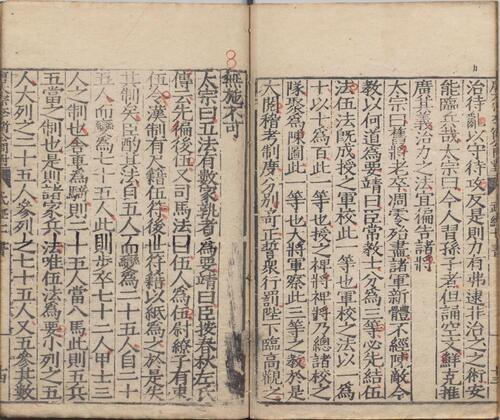 治待亂以守待攻反是則力有弗逮非治之之術安
能臨兵哉太宗曰今人習孫子者但誦空文鮮克推
廣其義治力之法宜徧告諸將
太宗曰舊將老卒凋零殆盡諸軍新置不經陣敵今
教以何道為要靖曰臣常教士分為三等必先結伍
法伍法既成授之軍校此一等也軍校之法以一為
十以十為百此一等也授之裨將裨將乃總諸校之
隊聚為陳圖此一等也大將軍察此三等之教於是
大閱稽考制度分別奇正誓衆行罰陛下臨高觀之
8
無施不可
太宗曰五法有數家孰者為要靖曰臣按春秋左氏
傳云先偏後伍又司馬法曰伍人為伍尉繚子有束
伍令漢制有尺籍伍符後世符籍以紙為之於是失
其制矣臣酌其法自五人而變為二十五人自二十
五人而變為七十五人此則步卒七十二人甲士三
人之制也舍車為騎則二十五人當八馬此則五兵
五當之制也是則諸家兵法唯伍法為要小列之五
人大列之二十五人參列之七十五人又五參其數